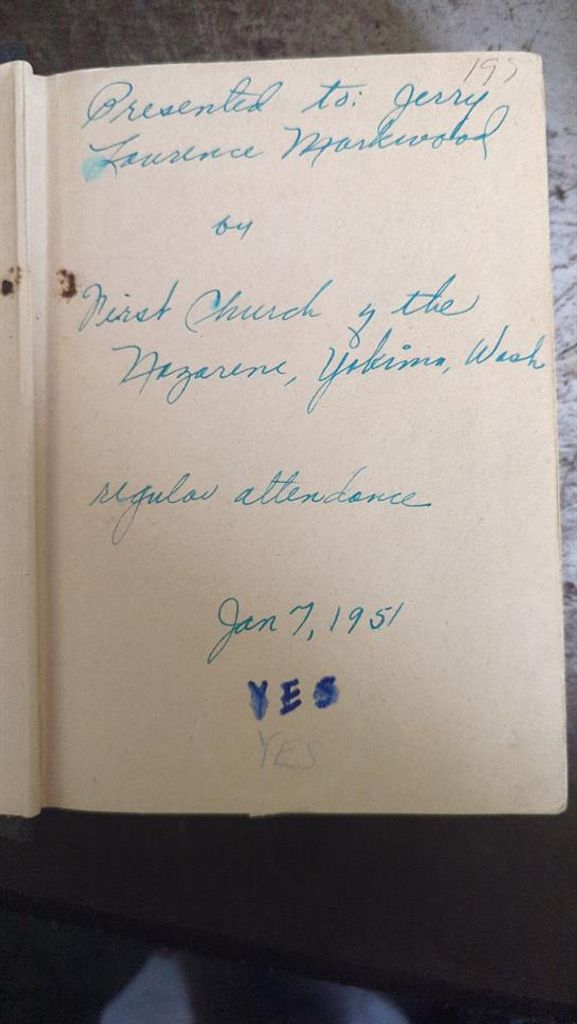 195
Presented to: Jerry
Laurence Markwood
by
First Church of the
Nazarene, Yakima, Wash
regular attendance
Jan 7, 1951
YES
YES